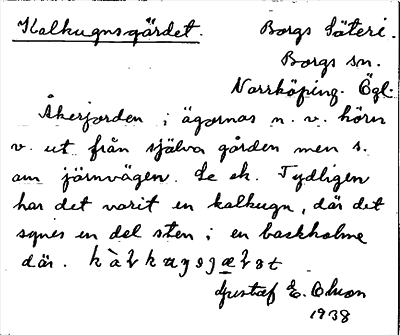 Kalkugnsgärdet.
Borgs Säteri.
Borgs sn.
Norrköping. Ögl.
Åkerjorden i ägornas n. v. hörn
v. ut från själva gården men s.
om järnvägen. Se ek. Tydligen
har det varit en kalkugn, där det
synes en del sten i en backholme
där.
Gustaf E. Olson
1938